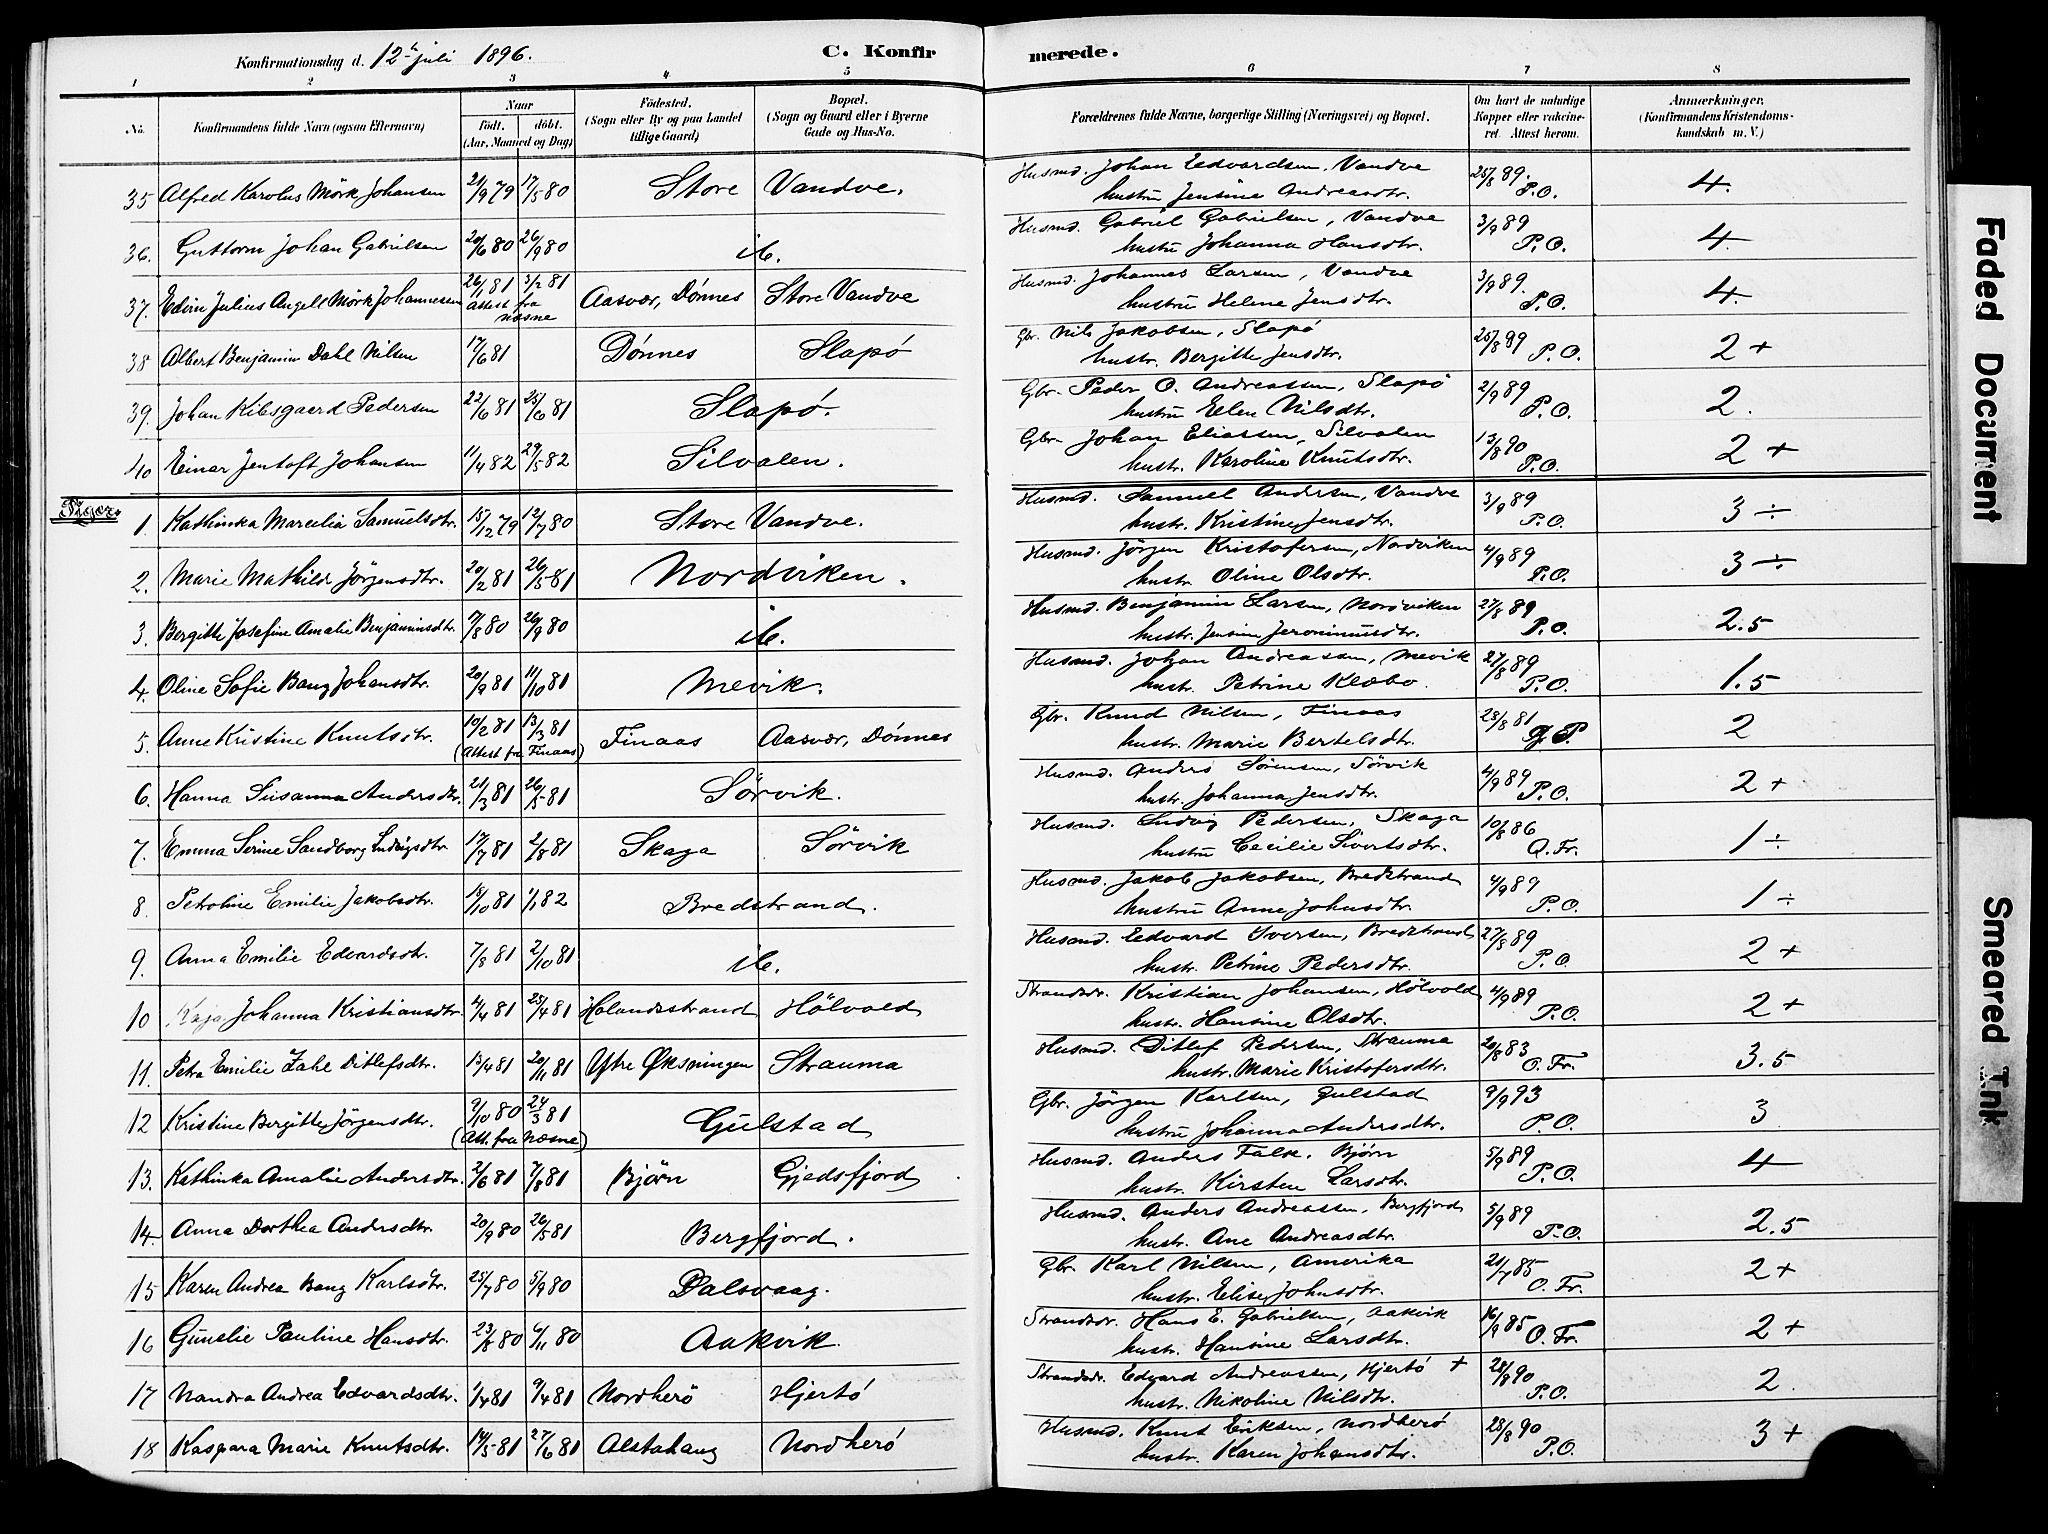 Konfirmationsdag d. 12te juli 1896. C. Konfirmerede.
1 2 3 4 5 6 7 8
No. Konfirmandens fulde Navn (ogsaa Efternavn) Naar Födt. döbt. (Aar, Maaned og Dag) Födested. (Sogn eller By og paa Landet tillige Gaard) Bopæl. (Sogn og Gaard eller i Byerne Gade og Hus-No. Forældrenes fulde Navne, borgerlige Stilling (Næringsvei) og Bopæl. Om havt de naturlige Kopper eller vakcineret. Attest herom. Anmærkninger. (Konfirmandens Kristendomskundskab m. V.)
35 Alfred Karolus Mörk Johansen 21/9 79 17/5 80 Store Vandve. Husmd. Johan Edvardsen, Vandve 25/8 89. P.O. 4.
hustru Jensine Andreasdtr.
36. Guttorm Johan Gabrielsen 20/6 80 26/9 80 ib. Husmd. Gabriel Gabrielsen, Vandve 3/9 89 P.O. 4.
hustru Johanna Hansdtr.
37. Edin Julius Angell Mörk Johannesen 26/1 81 3/2 81 Aasvær, Dönnes Store Vandve Husmd. Johannes Larsen, Vandve 3/9 89. P.O. 4
Attest fra Næsne hustru Helene Jensdtr.
38 Albert Benjamin Dahl Nilsen 17/6 81 Dönnes Slapö Gbr. Nils Jakobsen, Slapö 25/8 89 P.O. 2+
hustr. Bergitte Jensdtr.
39. Johan Kibsgaard Pedersen 22/6 81 25/6 81 Slapö. Gbr. Peder O. Andreassen, Slapö 2/9 89 P.O. 2.
hustru Ellen Nilsdtr.
40 Einar Jentoft Johansen 11/4 82 29/5 82 Silvalen. Gbr. Johan Eliassen, Silvalen 13/8 90 P.O. 2+
hustr. Karoline Knutsdtr.
Piger.
1. Kathinka Marcelia Samuelsdtr. 15/12 79 12/7 80 Store Vandve. Husmd. Samuel Andersen, Vandve 3/9 89 P.O. 3 ÷
hustr. Kristine Jensdtr.
2. Marie Mathilde Jörgensdtr. 20/2 81 26/5 81 Nordviken. Husmd. Jörgen Kristofersen, Nordviken 4/9 89 P.O. 3 ÷
hustr. Oline Olsdtr.
3. Bergitte Josefine Amalie Benjaminsdtr. 7/8 80 26/9 80 ib. Husmd. Benjamin Larsen, Nordviken 27/8 89 P.O. 2.5
hustr. Jensine Jeronimusdtr.
4. Oline Sofie Bang Johansdtr. 20/9 81 11/10 81 Mevik. Husmd. Johan Andreassen, Mevik 27/8 89 P.O. 1.5
hustr. Petrine Klæbo.
5. Anne Kristine Knutsdtr. 10/2 81 13/3 81 Finaas Aasvær, Dönnes Gbr. Knud Nilsen, Finaas 28/8 81 P. 2
(Attest fra Finaas) hustr. Marie Bertelsdtr.
6. Hanna Susanna Andersdtr. 21/3 81 26/5 81 Sörvik. Husmd. Anders Sörensen, Sörvik 4/9 89 P.O. 2+
hustr. Johanna Jensdtr.
7. Emma Serine Sandborg Ludvigsdtr 17/7 81 2/8 81 Skaga Sörvik Husmd. Ludvig Pedersen, Skaga 10/8 86 O.Fr. 1 ÷
hustru Cecilie Sivertsdtr.
8. Petroline Emilie Jakobsdtr. 18/10 81 1/1 82 Bredstrand. Husmd. Jakob Jakobsen, Bredstrand 4/9 89 P.O. 1 ÷
hustru Anne Johnsdtr.
9. Anna Emilie Edvardsdtr. 7/8 81 2/10 81 ib. Husmd. Edvard Iversen, Bredstrand 27/8 89 P.O. 2+
hustr. Petrine Pedersdtr.
10 Kaja Johanna Kristiansdtr. 4/4 81 25/4 81 Halandsstrand Hölvold Strandsdr. Kristian Johansen, Hölvold 4/9 89 P.O. 2+
hustr. Hansine Olsdtr.
11. Petra Emilie Zahl Ditlefsdtr. 13/4 81 20/11 81 Ytre Öksningen Strauma Husmd. Ditlef Pedersen, Strauma 20/8 83 O.Fr. 3.5
hustr. Marie Kristofersdtr.
12 Kristine Bergitte Jörgensdtr. 9/10 80 24/3 81 Gulstad Gbr. Jörgen Karlsen, Gulstad 9/9 93 P.O. 3
(Att. fra Næsne) hustru Johanna Andersdtr.
13. Kathinka Amalie Andersdtr. 2/6 81 7/8 81 Björn Gjedsfjord. Husmd. Anders Falk, Björn 5/9 89 P.O. 4
hustr. Kirsten Larsdtr.
14. Anna Dorthea Andersdtr. 20/9 80 26/5 81 Bergfjord. Husmd. Anders Andreassen, Bergfjord 5/9 89 P.O. 2.5
hustr. Ane Andreasdtr.
15 Karen Andrea Bang Karlsdtr. 25/7 80 5/9 80 Dalsvaag. Gbr. Karl Nilsen, Amerika 21/7 85 O.Fr. 2+
hustr. Elise Johnsdtr.
16 Gunelie Pauline Hansdtr. 23/8 80 6/11 80 Aakvik. Strandsdr. Hans E. Gabrielsen, Aakvik 16/9 85 O.Fr. 2+
hustr. Hansine Larsdtr.
17 Nandra Andrea Edvardsdtr. 1/4 81 9/4 81 Nordherö Hjertö Strandsdr. Edvard Andreassen, Hjertö + 28/8 90 P.O. 2.
hustr. Nikoline Nilsdtr.
18 Kaspara Marie Knutsdtr. 14/5 81 27/6 81 Alstahaug Nordherö Husmd. Knut Eriksen, Nordherö 28/8 90 P.O. 3+
hustr. Karen Johansdtr.
Faded Document
Smeared Ink